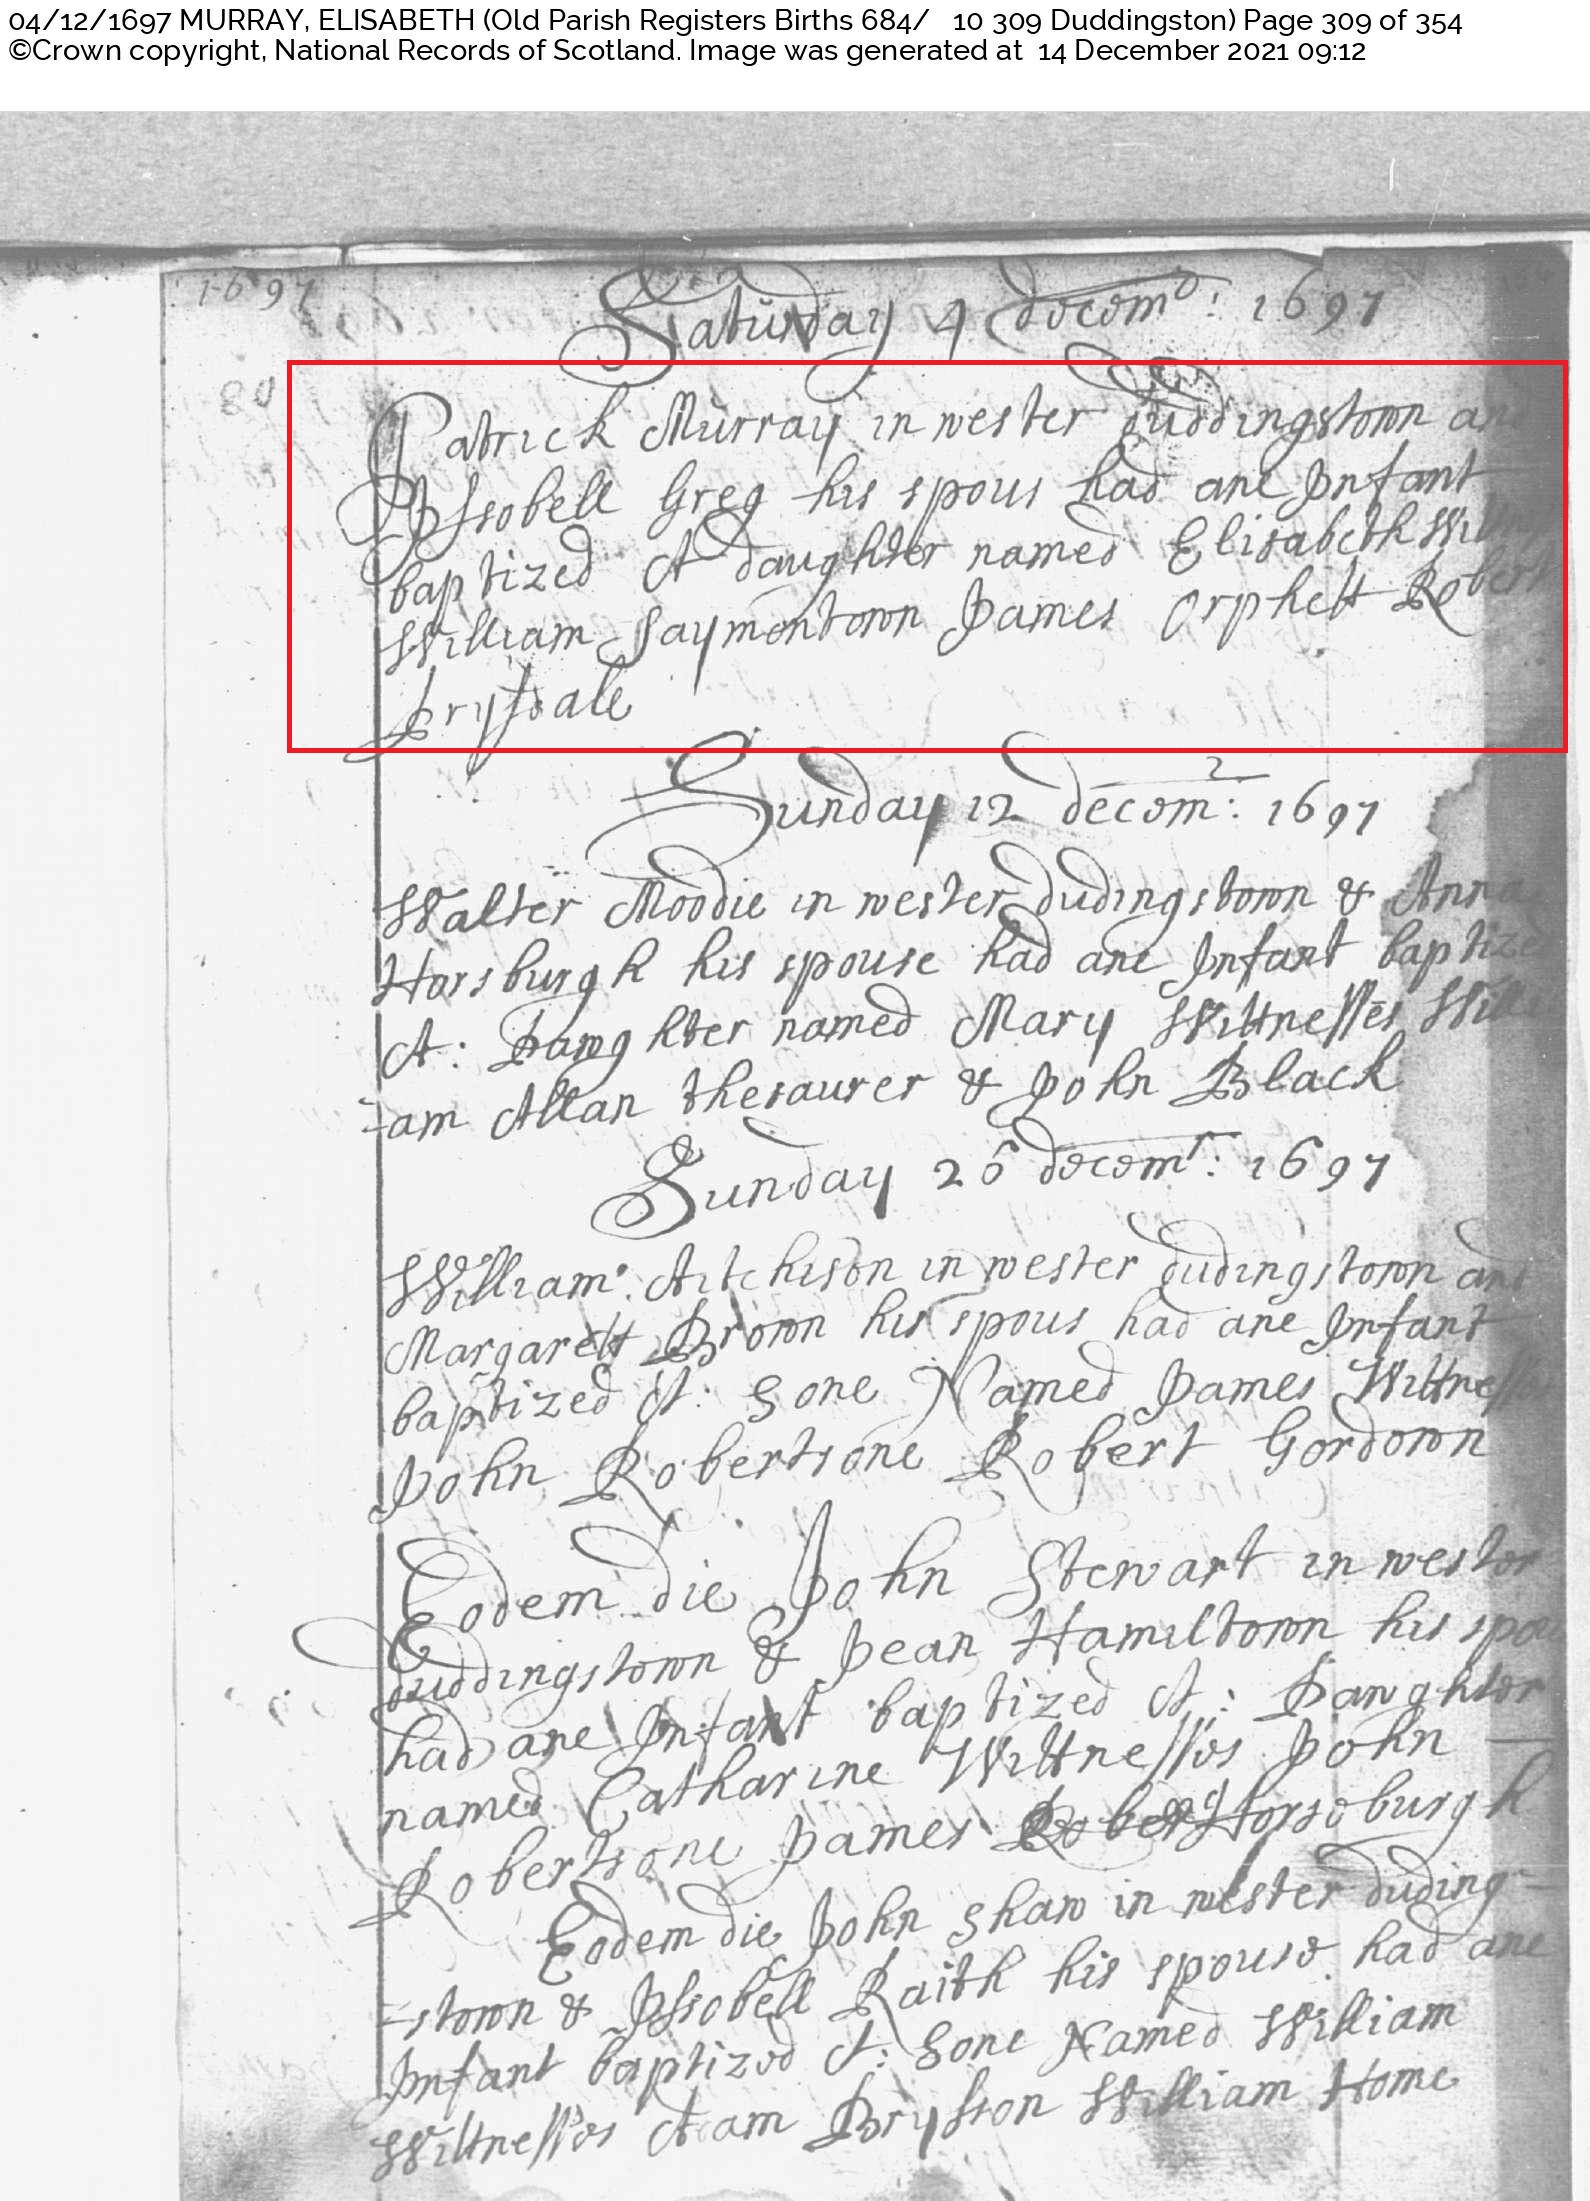 04/12/1697 MURRAY, ELISABETH (Old Parish Registers Births 684/ 10 309 Duddingston) Page 309 of 354
©Crown copyright, National Records of Scotland. Image was generated at 14 December 2021 09:12
1697
Saturday 4 decemr: 1697
Patrick Murray in wester duddingstown and
Issobell Greg his spous had ane Infant
baptized A daughter named Elisabeth
William Saymontown James Orphett Robert
Drysdale
Sunday 12 decemr: 1697
Walter Moodie in wester dudingstown & Anna
Horsburgh his spouse had ane Infant baptized
A: Dawghter named Mary Wittnesses Willi
-am Allan thesaurer & John Black
Sunday 26 decemr: 1697
William: Aitchison in wester dudingstown and
Margarett Brown his spous had ane Infant
baptized A: Sone Named James
John Robertsone Robert Gordown
Eodem die John Stewart in wester
duddingstown & Jean Hamiltown his
had ane Infant baptized A: Dawghter
named Catharine Wittnesses John
Robertsone James Horseburgh
Eodem die John Shaw in wester duding-
-stown & Issobell Raith his spouse had ane
Infant baptized A: Sone Named William
Wittnesses Adam Brysson William Home